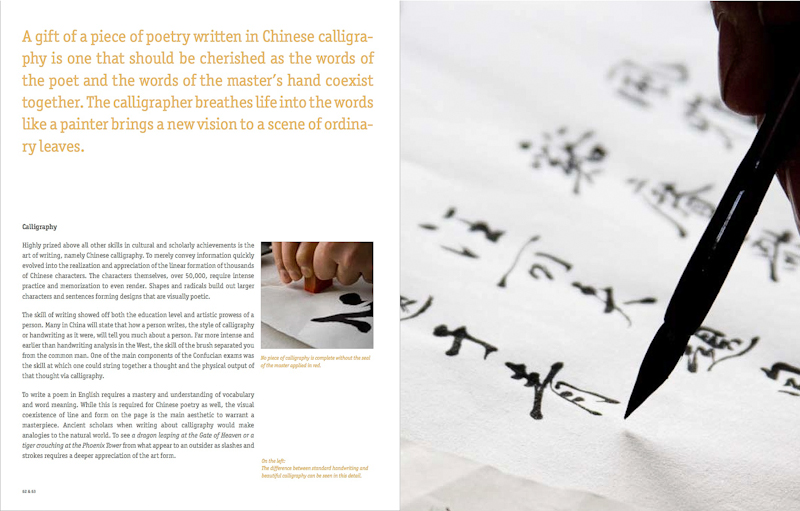 A gift of a piece of poetry written in Chinese calligra-
phy is one that should be cherished as the words of
the poet and the words of the master's hand coexist
together. The calligrapher breathes life into the words
like a painter brings a new vision to a scene of ordina-
ry leaves.
Calligraphy
Highly prized above all other skills in cultural and scholarly achievements is the
art of writing, namely Chinese calligraphy. To merely convey information quickly
evolved into the realization and appreciation of the linear formation of thousands
of Chinese characters. The characters themselves, over 50,000, require intense
practice and memorization to even render. Shapes and radicals build out larger
characters and sentences forming designs that are visually poetic.
The skill of writing showed off both the education level and artistic prowess of a
person. Many in China will state that how a person writes, the style of calligraphy
or handwriting as it were, will tell you much about a person. Far more intense and
earlier than handwriting analysis in the West, the skill of the brush separated you
from the common man. One of the main components of the Confucian exams was
the skill at which one could string together a thought and the physical output of
that thought via calligraphy.
To write a poem in English requires a mastery and understanding of vocabulary
and word meaning. While this is required for Chinese poetry as well, the visual
coexistence of line and form on the page is the main aesthetic to warrant a
masterpiece. Ancient scholars when writing about calligraphy would make
analogies to the natural world. To see a dragon leaping at the Gate of Heaven or a
tiger crouching at the Phoenix Tower from what appear to an outsider as slashes and
strokes requires a deeper appreciation of the art form.
No piece of calligraphy is complete without the seal
of the master applied in red.
On the left:
The difference between standard handwriting and
beautiful calligraphy can be seen in this detail.